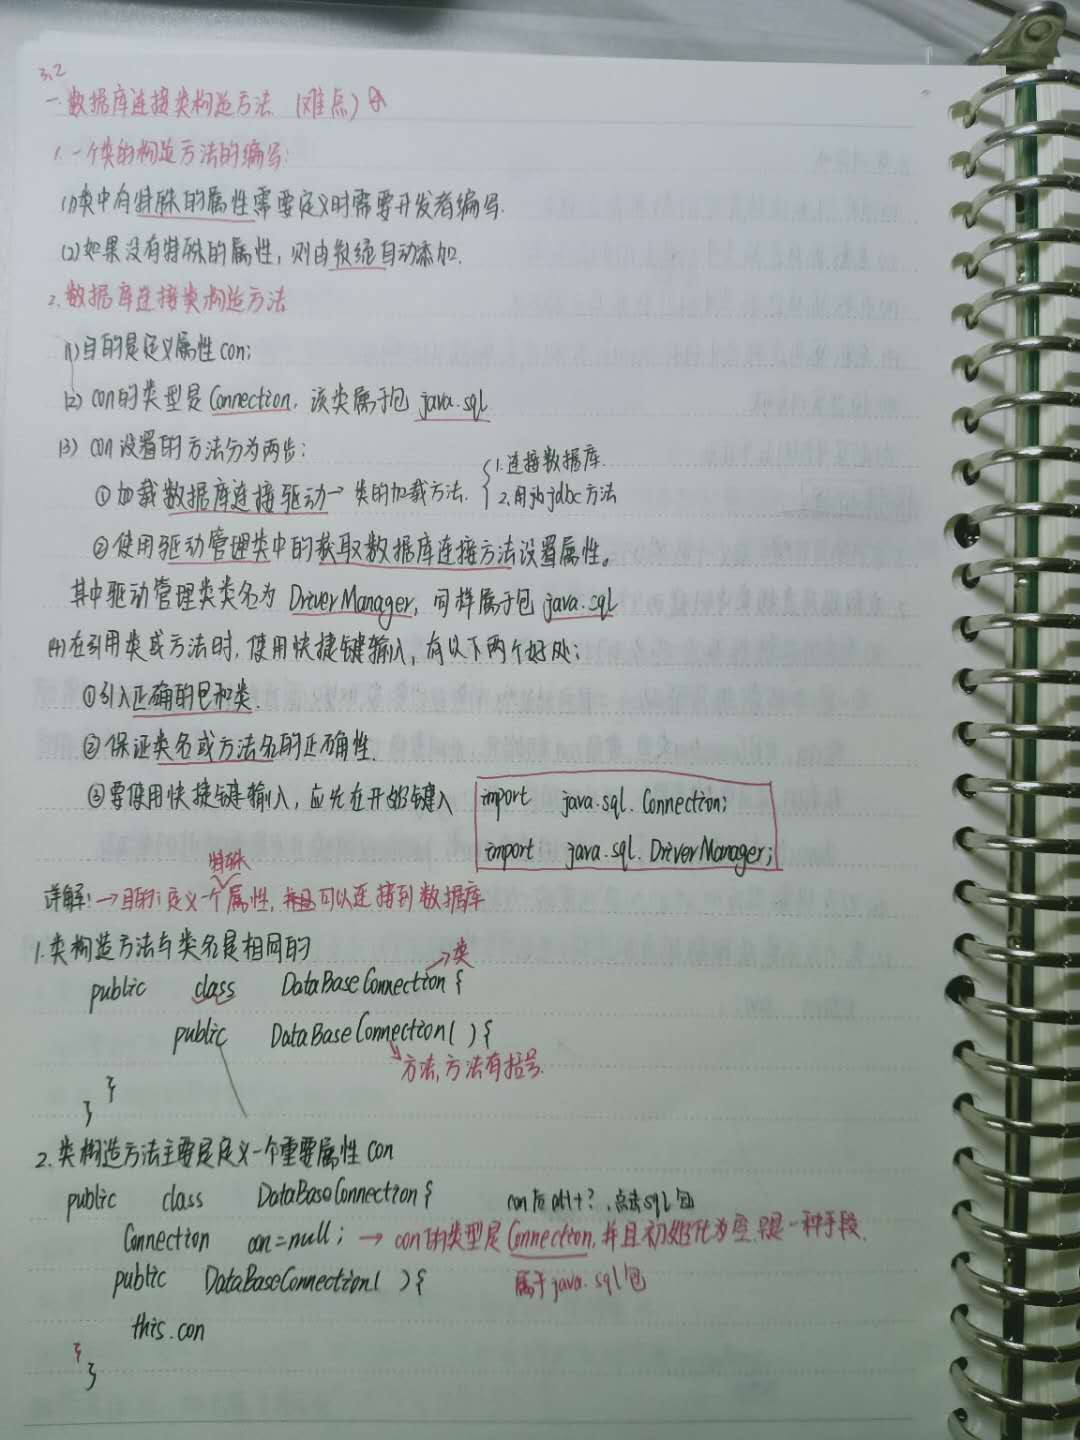 3.2
一.数据库连接类构造方法 (难点)
1.一个类的构造方法的编写:
(1)类中有特殊的属性需要定义时需要开发者编写.
(2)如果没有特殊的属性,则由系统自动添加.
2.数据库连接类构造方法
(1)目的是定义属性con;
(2) con的类型是Connection, 该类属于包 java.sql
(3) con设置的方法分为两步:
①加载数据库连接驱动→ 类的加载方法. { 1.连接数据库.
2.用为jdbc方法
②使用驱动管理类中的获取数据库连接方法设置属性。
其中驱动管理类类名为 DriverManager, 同样属于包 java.sql
(4)在引用类或方法时,使用快捷键输入,有以下两个好处:
①引入正确的包和类.
②保证类名或方法名的正确性.
③要使用快捷键输入,应先在开始键入 import java.sql.Connection;
import java.sql.DriverManager;
特殊
详解:→目的:定义一个属性,并且可以连接到数据库
1.类构造方法与类名是相同的
→类
public class DataBaseConnection{
public DataBaseConnection( ){
方法,方法有括号.
}
}
2.类构造方法主要是定义一个重要属性con
public class DataBaseConnection{ con后alt+?,点击sql包
Connection con=null; → con的类型是Connection,并且初始化为空.只是一种手段.
public DataBaseConnection( ){ 属于java.sql包
this.con
}
}